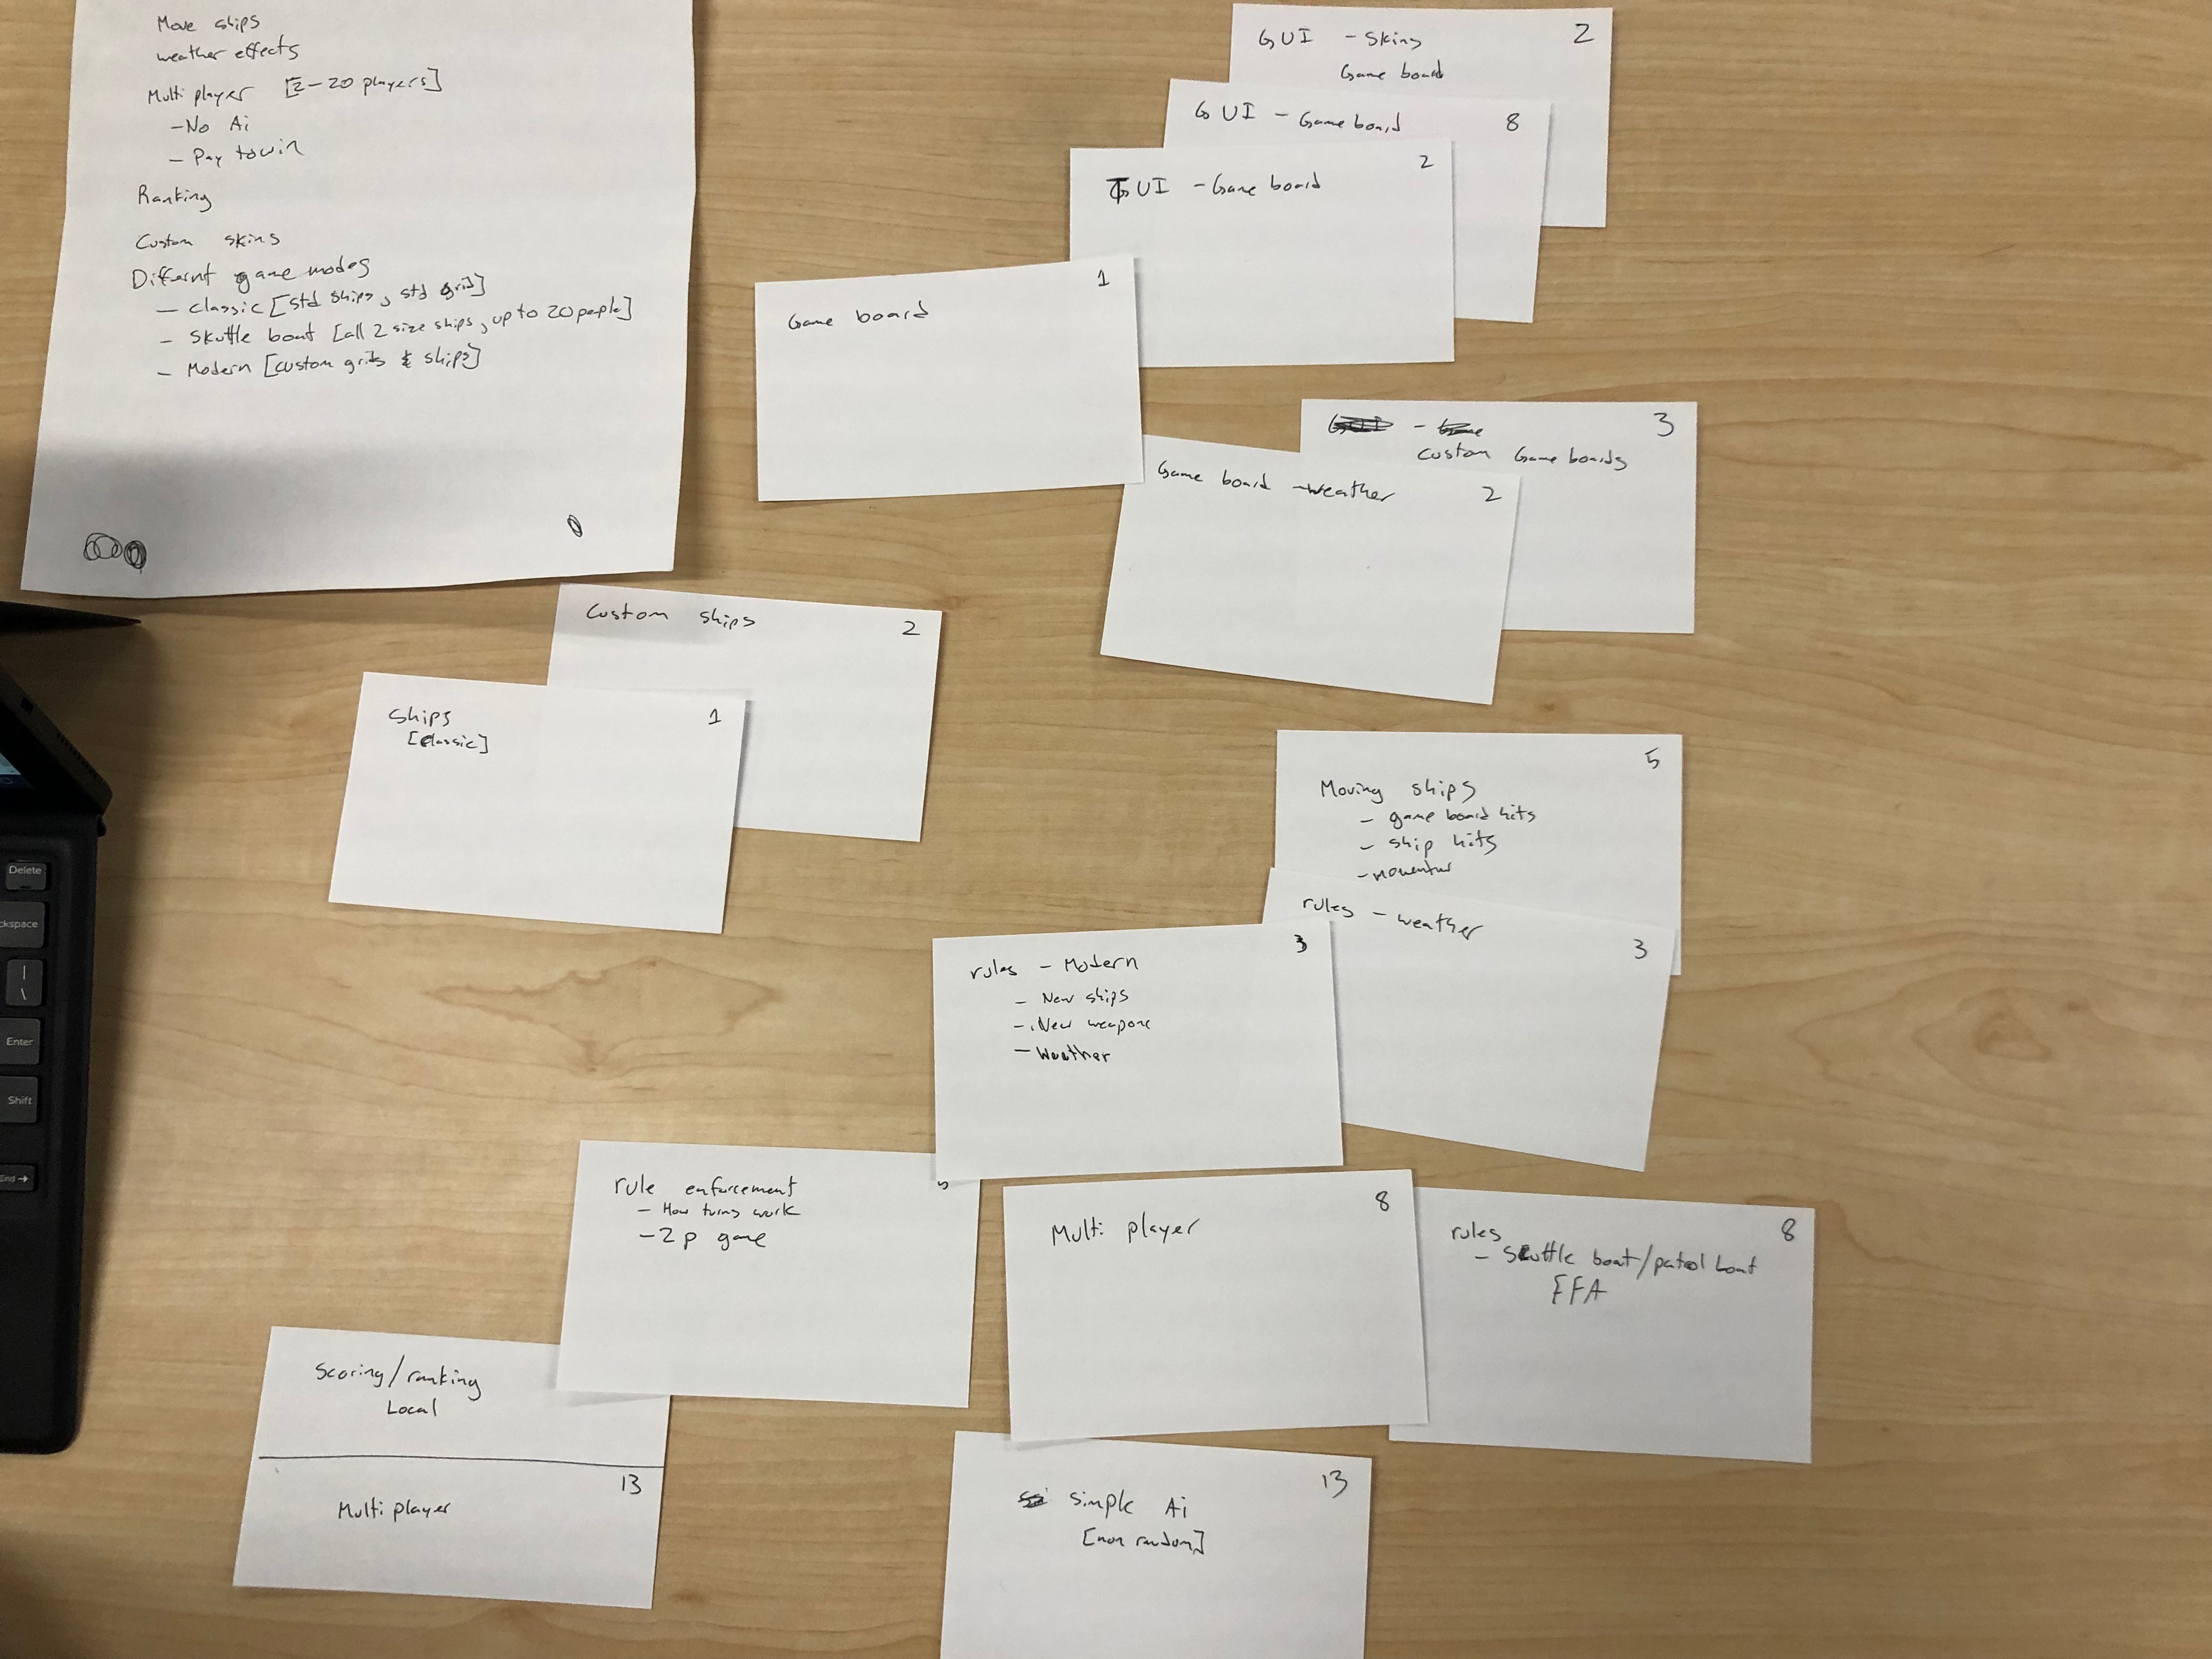 Move ships
weather effects
Multi player [2-20 players]
-No Ai
- Pay to win
Ranking
Custom skins
Differnt game modes
- classic [std ships, std grid]
- Skuttle boat [all 2 size ships, up to 20 people]
- Modern [custom grids & ships]
GUI - Skins 2
Game board
GUI - Game board 8
TUI - Game board 2
Game board 1
custom Game boards 3
Game board - weather 2
Custom ships 2
Ships 1
[classic]
5
Moving ships
- game board hits
- ship hits
- momentum
rules - weather 3
rules - Modern 3
- New ships
- New weapons
- Weather
rule enforcement
- How turns work
- 2 p game
Multi player 8
rules 8
- Scuttle boat/patrol boat
FFA
Scoring/ranking
Local
13
Multi player
simple Ai 13
[non random]
Delete
ckspace
|
\
Enter
Shift
End →